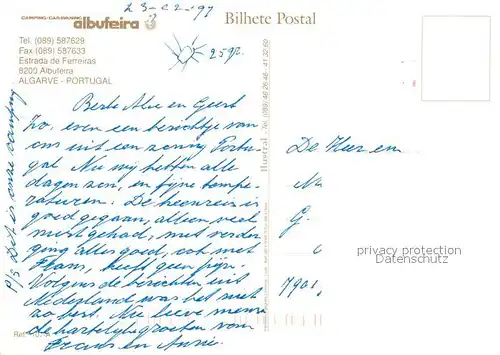 23-02-'97
CAMPING-CARAVANING
albufeira
Bilhete Postal
Tel. (089) 587629
Fax (089) 587633
Estrada de Ferreiras
8200 Albufeira
ALGARVE - PORTUGAL
25 gr.
Beste Alie en Geert
Zo, even een berichtje van
ons uit een zonnig Portu-
gal. Nu wij hebben alle
dagen zon, en fijne tempe-
raturen. De heenreis is
goed gegaan, alleen veel
mist gehad, met verder
ging alles goed, ook met
Frans, heeft geen pijn.
Volgens de berichten uit
Nederland was het niet
zo best. Nu lieve mensen
de hartelijke groeten van
Frans en Annie
P/S Dit is onze camping
De Heer en
G.
7901
privacy protection
Datenschutz
Ilustral - Tel. (089)
Ref.